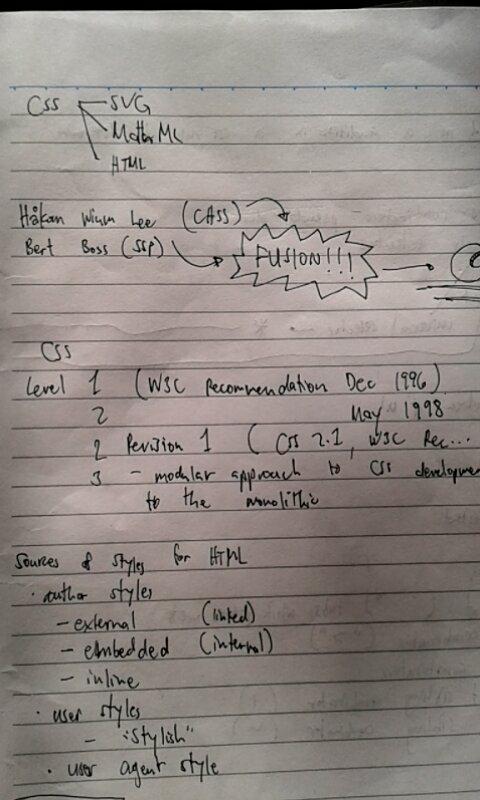 CSS SVG
MathML
HTML
Håkan Wium Lee (CASS)
Bert Boss (SSP)
FUSION!!!
CSS
Level 1 (W3C Recommendation Dec 1996)
2 May 1998
2 Revision 1 (CSS 2.1, W3C Rec...
3 - modular approach to CSS developme
to the monolithic
Sources of styles for HTML
· author styles
- external (linked)
- embedded (internal)
- inline
· user styles
- "Stylish"
· user agent style